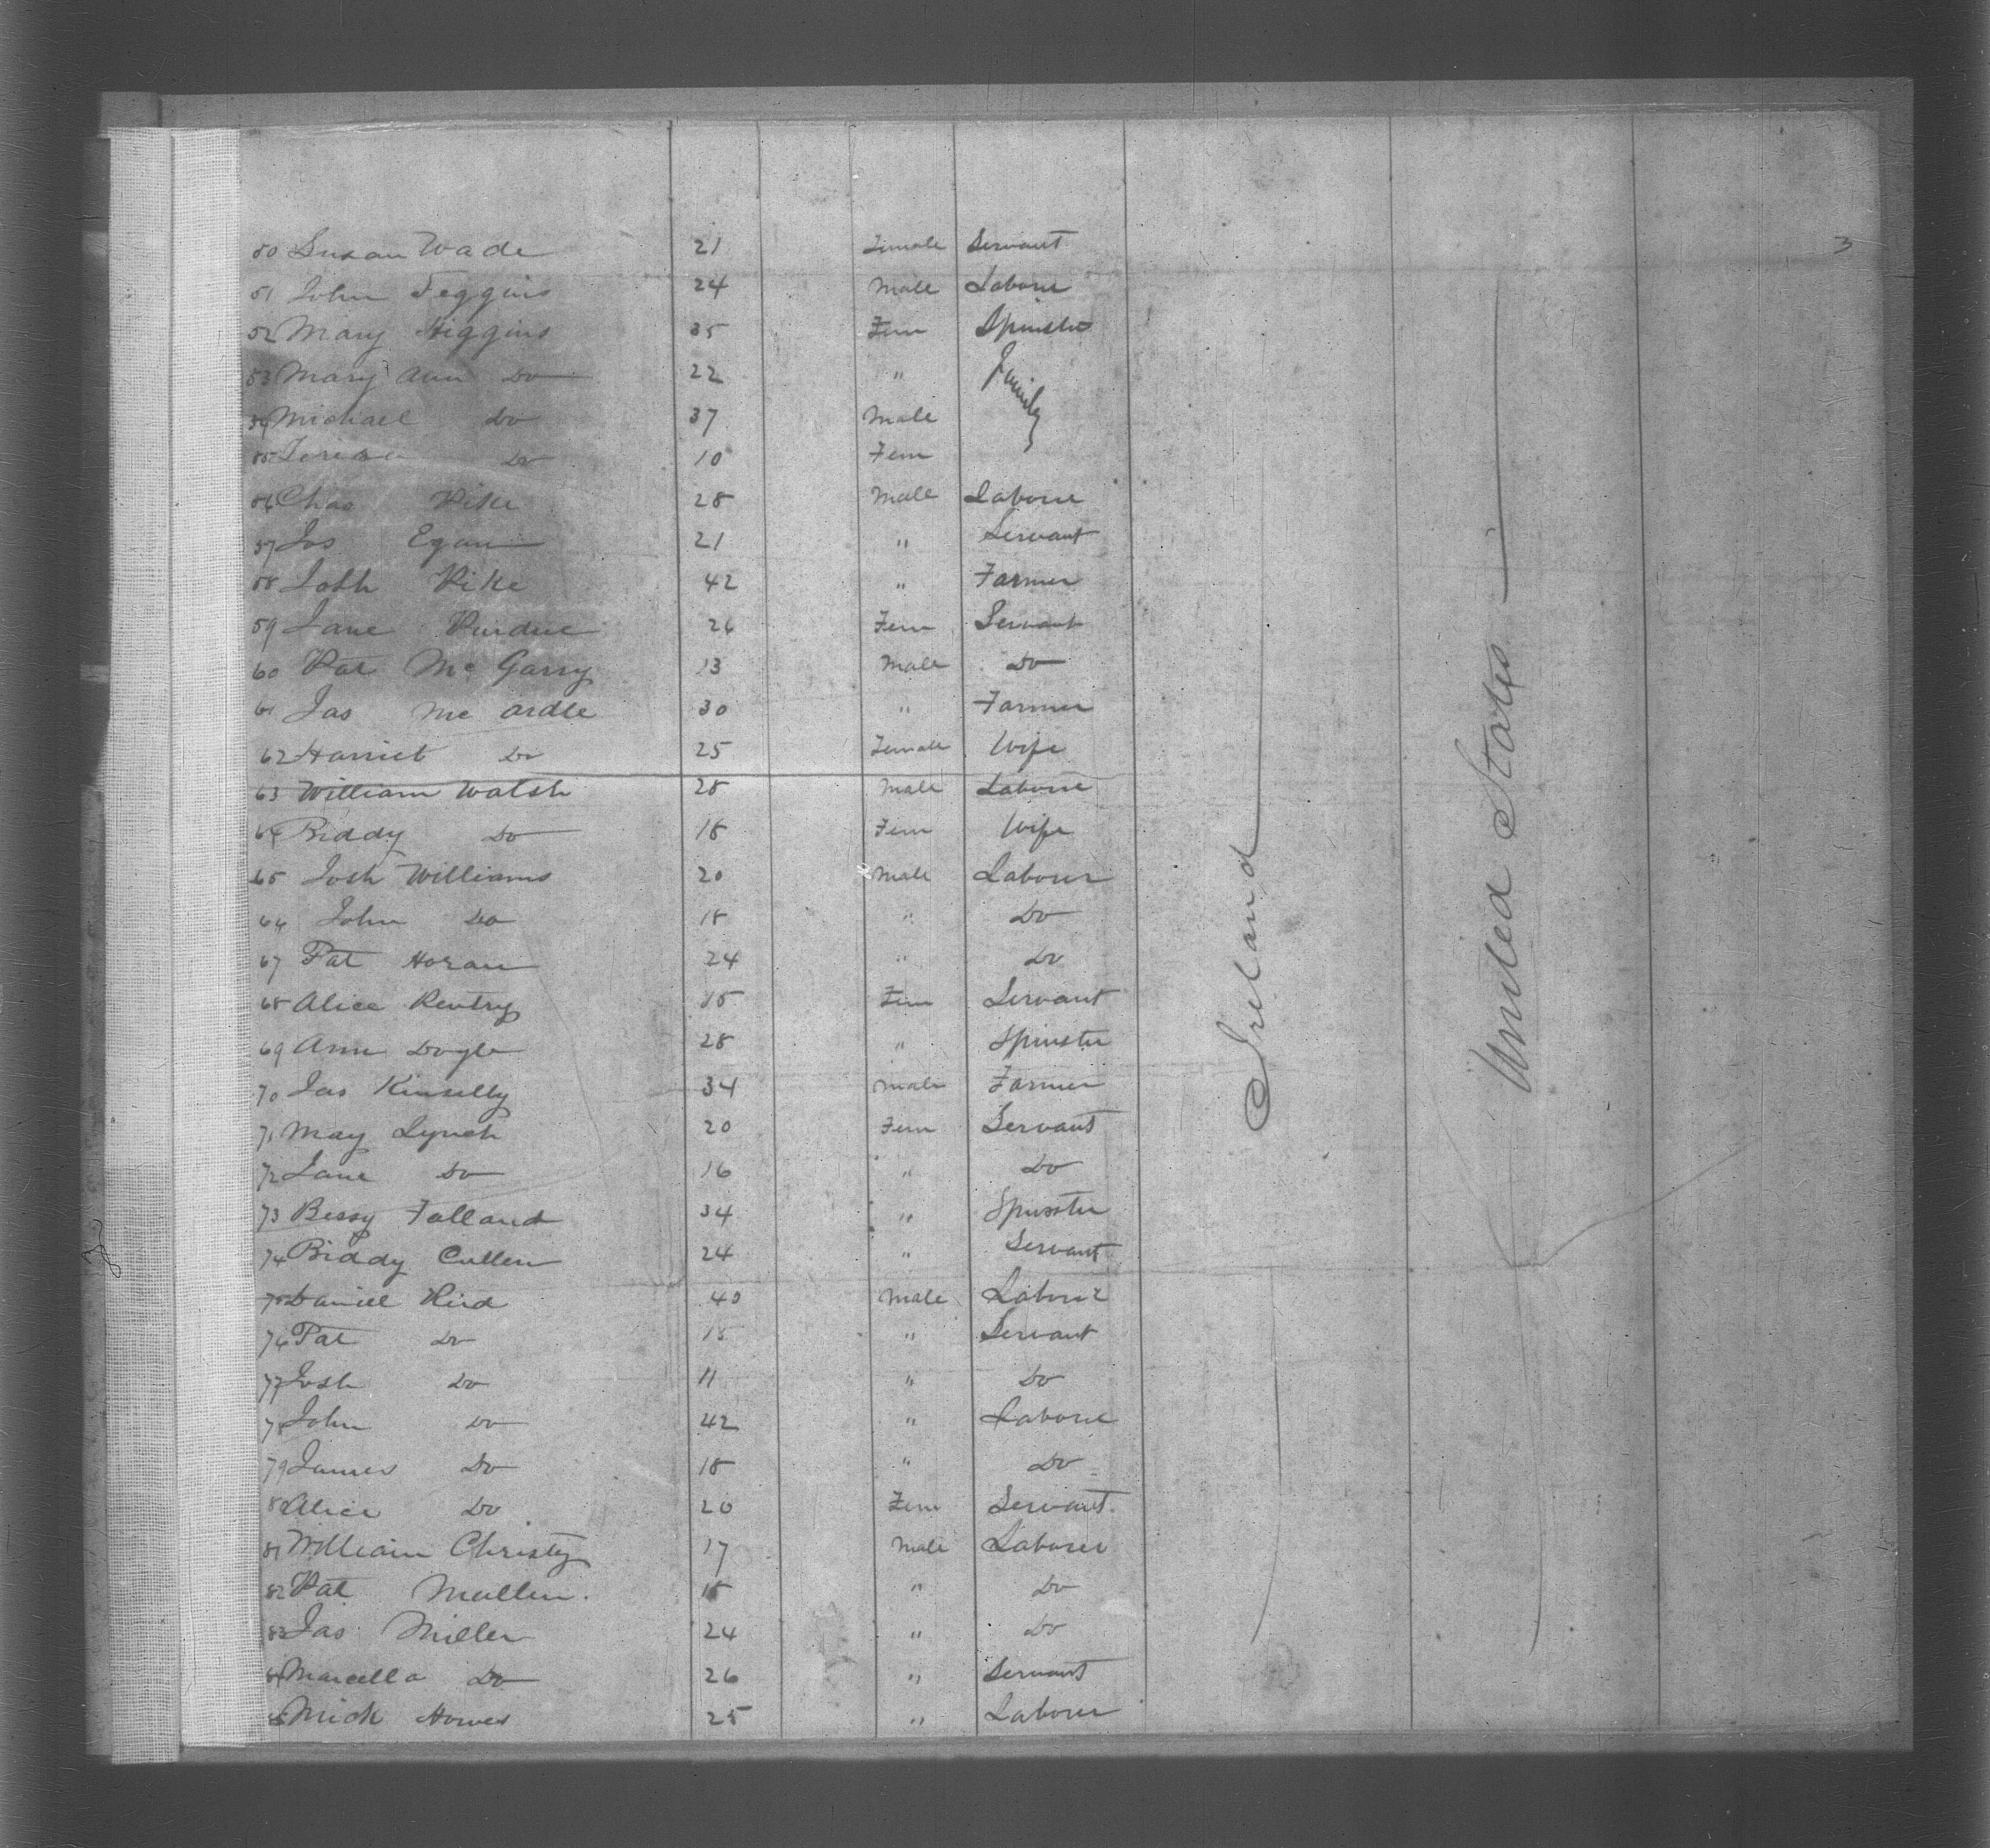 3
50 Susan Wade 21 Female Servant
51 John Feggins 24 Male Laborer
52 Mary Higgins 35 Fem Spinster
53 Mary Ann Do 22 " Family
54 Michael Do 37 Male
55 Teresa Do 10 Fem
56 Chas Pike 28 Male Laborer
57 Jos Egan 21 " Servant
58 Josh Pike 42 " Farmer
59 Jane Purdue 26 Fem Servant
60 Pat Mc Garry 13 Male Do
61 Jas Mc Ardle 30 " Farmer
62 Harriet Do 25 Female Wife
63 William Walsh 28 Male Laborer
64 Biddy Do 18 Fem Wife
65 Josh Williams 20 Male Laborer
66 John Do 18 " Do
67 Pat Horan 24 " Do
68 Alice Rentry 15 Fem Servant
69 Ann Doyle 28 " Spinster
70 Jas Kinselly 34 Male Farmer
71 May Lynch 20 Fem Servant
72 Jane Do 16 " Do
73 Bessy Falland 34 " Spinster
74 Biddy Cullen 24 " Servant
75 Daniel Hird 40 Male Laborer
76 Pat Do 18 " Servant
77 Josh Do 11 " Do
78 John Do 42 " Laborer
79 James Do 18 " Do
80 Alice Do 20 Fem Servant
81 William Christy 17 Male Laborer
82 Pat Mullen. 18 " Do
83 Jas Miller 24 " Do
84 Marcella Do 26 " Servant
85 Mick Howes 25 " Laborer
Ireland
United States